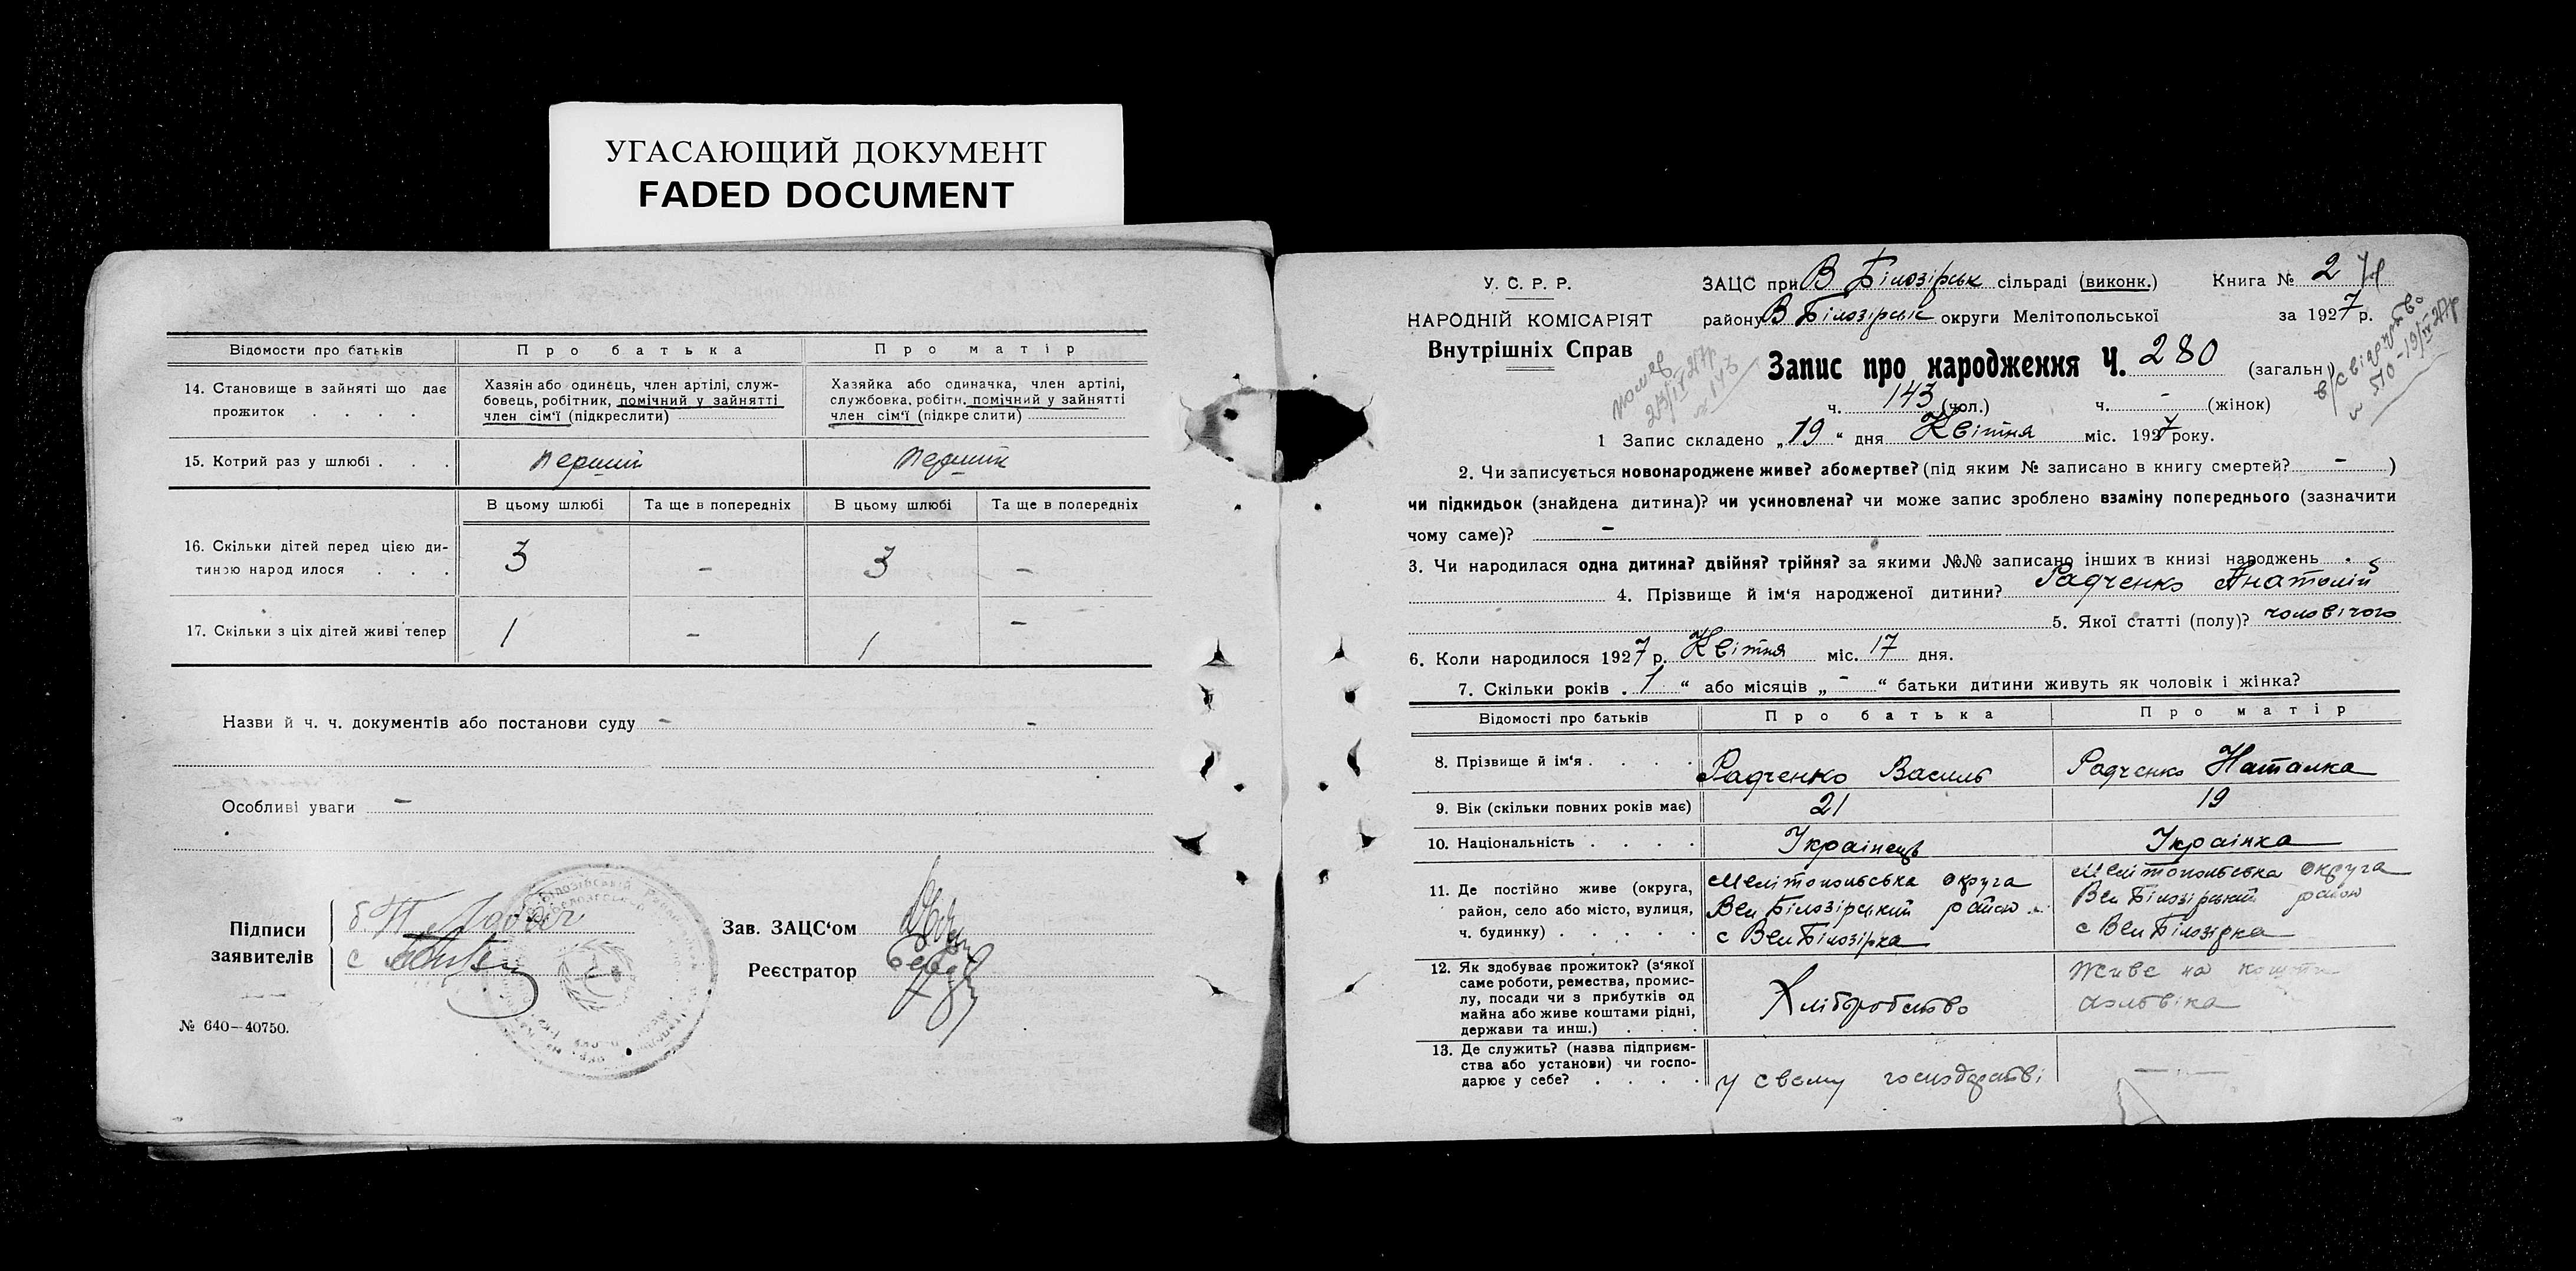 УГАСАЮЩИЙ ДОКУМЕНТ
FADED DOCUMENT
Відомости про батьків
Про батька
Про матір
14. Становище в зайняті що дає
прожиток . . . .
Хазяін або одинець, член артілі, служ-
бовець, робітник, помічний у зайнятті
член сім'ї (підкреслити)
Хазяйка або одиначка, член артілі,
службовка, робітн. помічний у зайнятті
член сім'ї (підкре слити)
15. Котрий раз у шлюбі . . .
перший
перший
В цьому шлюбі
Та ще в попередніх
В цьому шлюбі
Та ще в попередніх
16. Скільки дітей перед цією ди-
тиною народ илося . . .
3
–
3
–
17. Скільки з ціх дітей живі тепер
1
–
1
–
Назви й ч. ч. документів або постанови суду – –
Особливі уваги –
Підписи
заявителів
Зав. ЗАЦС'ом
Реєстратор
№ 640—40750.
У. С. Р. Р.
НАРОДНІЙ КОМІСАРІЯТ
Внутрішніх Справ
ЗАЦС при В Білозірськ сільраді (виконк.)
Книга № 2
району В Білозірськ округи Мелітопольської
за 1927 р.
Запис про народження Ч. 280 (загальн.)
ч. 143 (чол.) ч. - (жінок)
1 Запис складено „19“ дня Квітня міс. 1927 року.
2. Чи записується новонароджене живе? або мертве? (під яким № записано в книгу смертей? – )
чи підкидьок (знайдена дитина)? чи усиновлена? чи може запис зроблено взаміну попереднього (зазначити
чому саме)? –
3. Чи народилася одна дитина? двійня? трійня? за якими №№ записано інших в книзі народжень
4. Прізвище й ім'я народженої дитини? Радченко Анатолій
5. Якої статті (полу)? чоловічого
6. Коли народилося 1927 р. Квітня міс. 17 дня.
7. Скільки років . 1 “ або місяців „ - “ батьки дитини живуть як чоловік і жінка?
Відомості про батьків
Про батька
Про матір
8. Прізвище й ім'я . . . .
Радченко Василь
Радченко Наталка
9. Вік (скільки повних років має)
21
19
10. Національність . . . .
Українець
Українка
11. Де постійно живе (округа,
район, село або місто, вулиця,
ч. будинку) . . . . .
Мелітопольська округа
Вел Білозірський район
с Вел Білозірка
Мелітопольська округа
Вел Білозірський район
с Вел Білозірка
12. Як здобуває прожиток? (з'якої
саме роботи, ремества, промис-
лу, посади чи з прибутків од
майна або живе коштами рідні,
держави та инш.) . . .
Хліборобство
Живе на кошти
чоловіка
13. Де служить? (назва підприєм-
ства або установи) чи госпо-
дарює у себе? . . . .
у свому господарстві